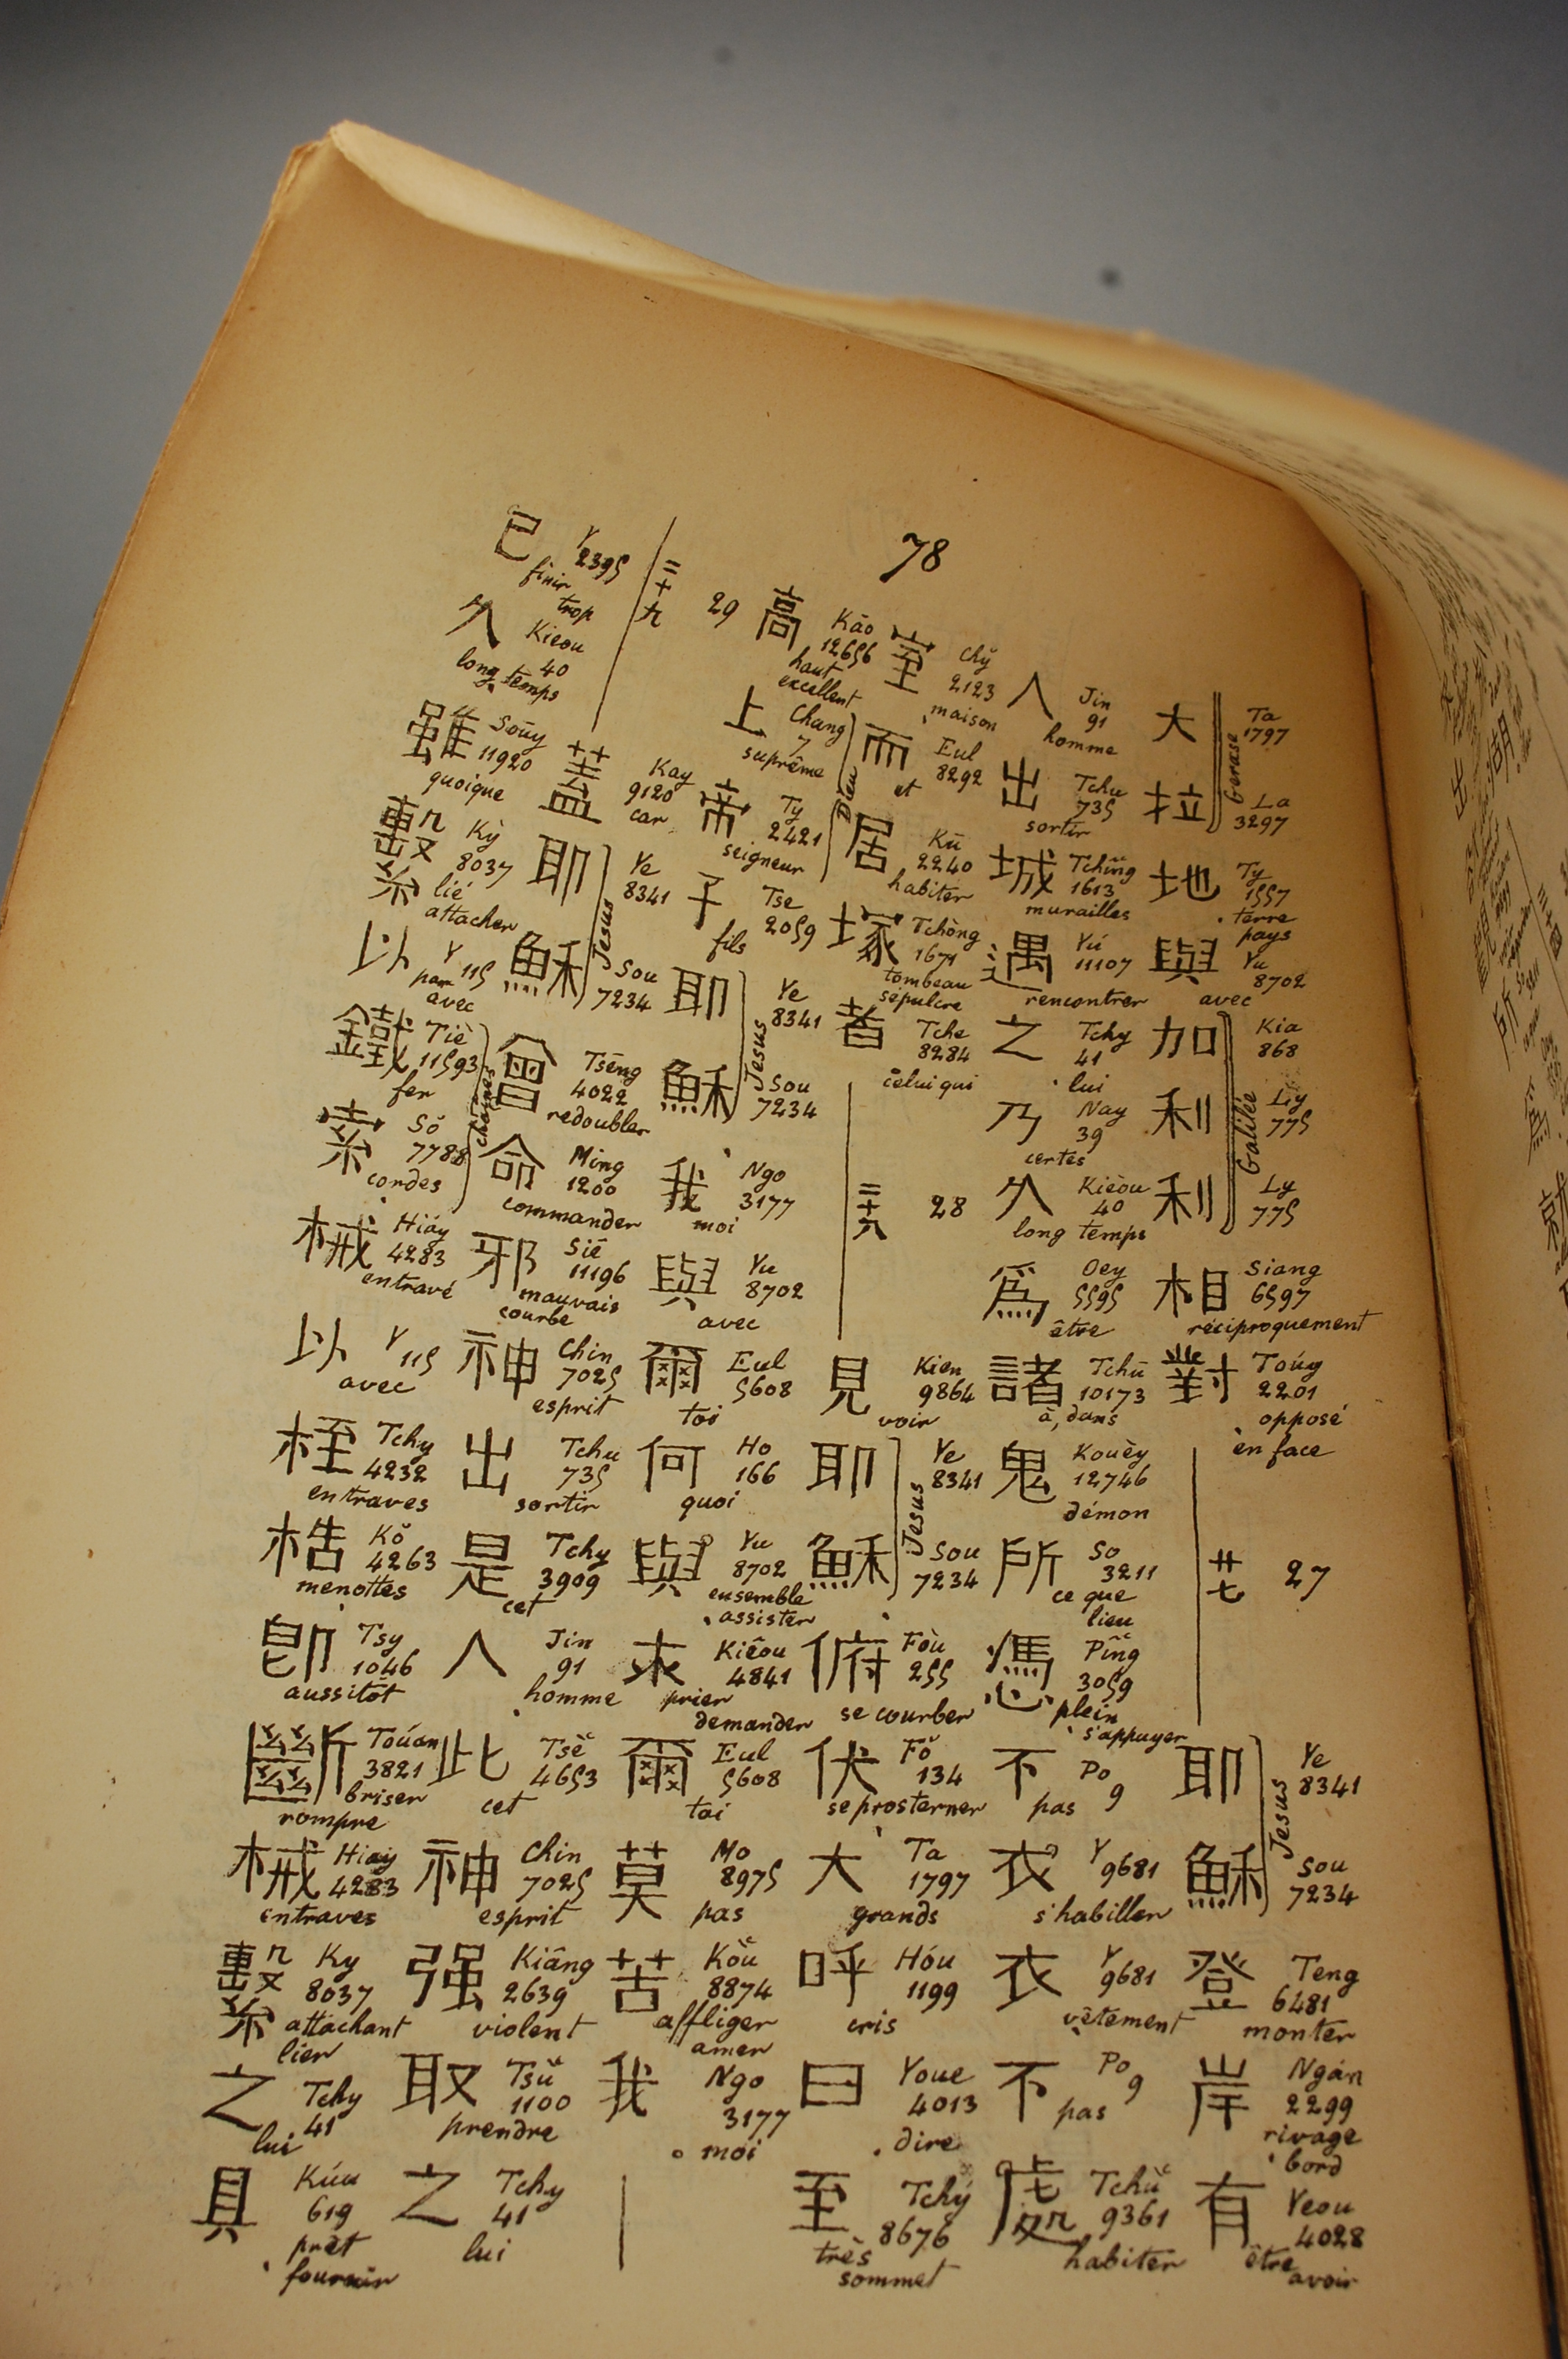 78
大 Ta 1797
拉 La 3297
Gerase
地 Ty 1557 terre pays
與 Yu 8702 avec
加 Kia 868
利 Ly 775
利 Ly 775
Galilée
相 Siang 6597 réciproquement
對 Toúy 2201 opposé en face
廿七 27
耶 Ye 8341
穌 Sou 7234
Jesus
登 Teng 6481 monter
岸 Ngán 2299 rivage bord
有 Yeou 4028 être avoir
人 Jin 91 homme
出 Tchu 735 sortir
城 Tchîng 1613 murailles
遇 Yú 11107 rencontrer
之 Tchy 41 lui
乃 Nay 39 certes
久 Kièou 40 long temps
爲 Oey 5595 être
諸 Tchū 10173 à, dans
鬼 Kouèy 12746 démon
所 So 3211 ce que lieu
憑 Pîng 3059 plein s'appuyer
不 Po 9 pas
衣 Y 9681 s'habiller
衣 Y 9681 vêtement
不 Po 9 pas
處 Tchŭ 9361 habiter
室 Chy̆ 2123 maison
而 Eul 8292 et
居 Kū 2240 habiter
塚 Tchòng 1671 tombeau sépulcre
者 Tche 8284 celui qui
二十八 28
見 Kien 9864 voir
耶 Ye 8341
穌 Sou 7234
Jesus
俯 Foù 255 se courber
伏 Fŏ 134 se prosterner
大 Ta 1797 grands
呼 Hóu 1199 cris
曰 Youe 4013 dire
至 Tchý 8676 très sommet
高 Kāo 12656 haut excellent
上 Chang 7 suprême
帝 Ty 2421 seigneur
Dieu
子 Tse 2059 fils
耶 Ye 8341
穌 Sou 7234
Jesus
我 Ngo 3177 moi
與 Yu 8702 avec
爾 Eul 5608 toi
何 Ho 166 quoi
與 Yu 8702 ensemble assister
求 Kiêou 4841 prier demander
爾 Eul 5608 toi
莫 Mo 8975 pas
苦 Kŏu 8874 affliger amer
我 Ngo 3177 moi
二十九 29
蓋 Kay 9120 car
耶 Ye 8341
穌 Sou 7234
Jesus
曾 Tsēng 4022 redoubler
命 Ming 1200 commander
邪 Siē 11196 mauvais courbe
神 Chin 7025 esprit
出 Tchu 735 sortir
是 Tchy 3909 cet
人 Jin 91 homme
此 Tsĕ 4653 cet
神 Chin 7025 esprit
强 Kiâng 2639 violent
取 Tsŭ 1100 prendre
之 Tchy 41 lui
已 Y 2395 finir trop
久 Kieou 40 long temps
雖 Sōuy 11920 quoique
繫 Kỳ 8037 lié attacher
以 Y 115 par avec
鐵 Tiĕ 11593 fer
索 Sŏ 7788 cordes
chaines
械 Hiáy 4283 entravé
以 Y 115 avec
桎 Tchy 4232 entraves
梏 Kŏ 4263 menottes
即 Tsy 1046 aussitôt
斷 Toúan 3821 briser rompre
械 Hiáy 4283 entraves
繫 Ky 8037 attachant lier
之 Tchy 41 lui
具 Kúu 619 prêt fournir